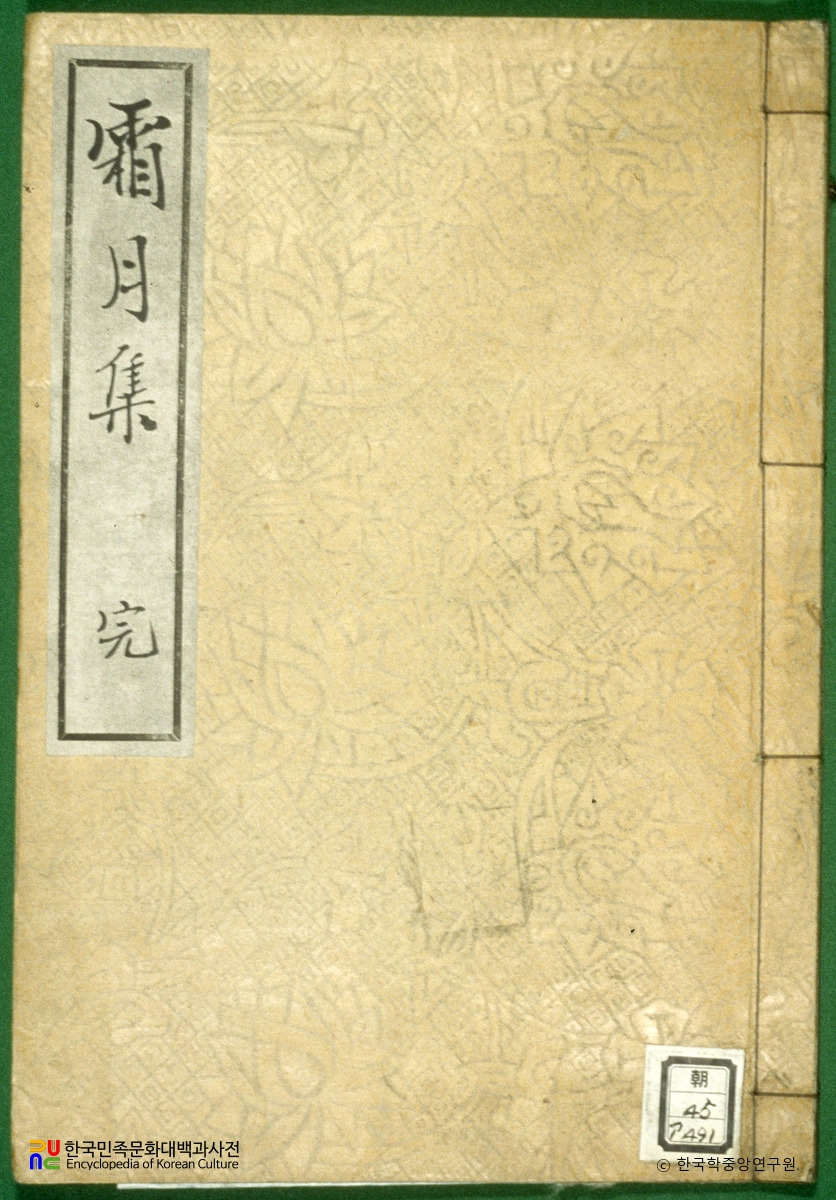 霜月集 完
朝
45
ア491
한국민족문화대백과사전
Encyclopedia of Korean Culture
© 한국학중앙연구원.